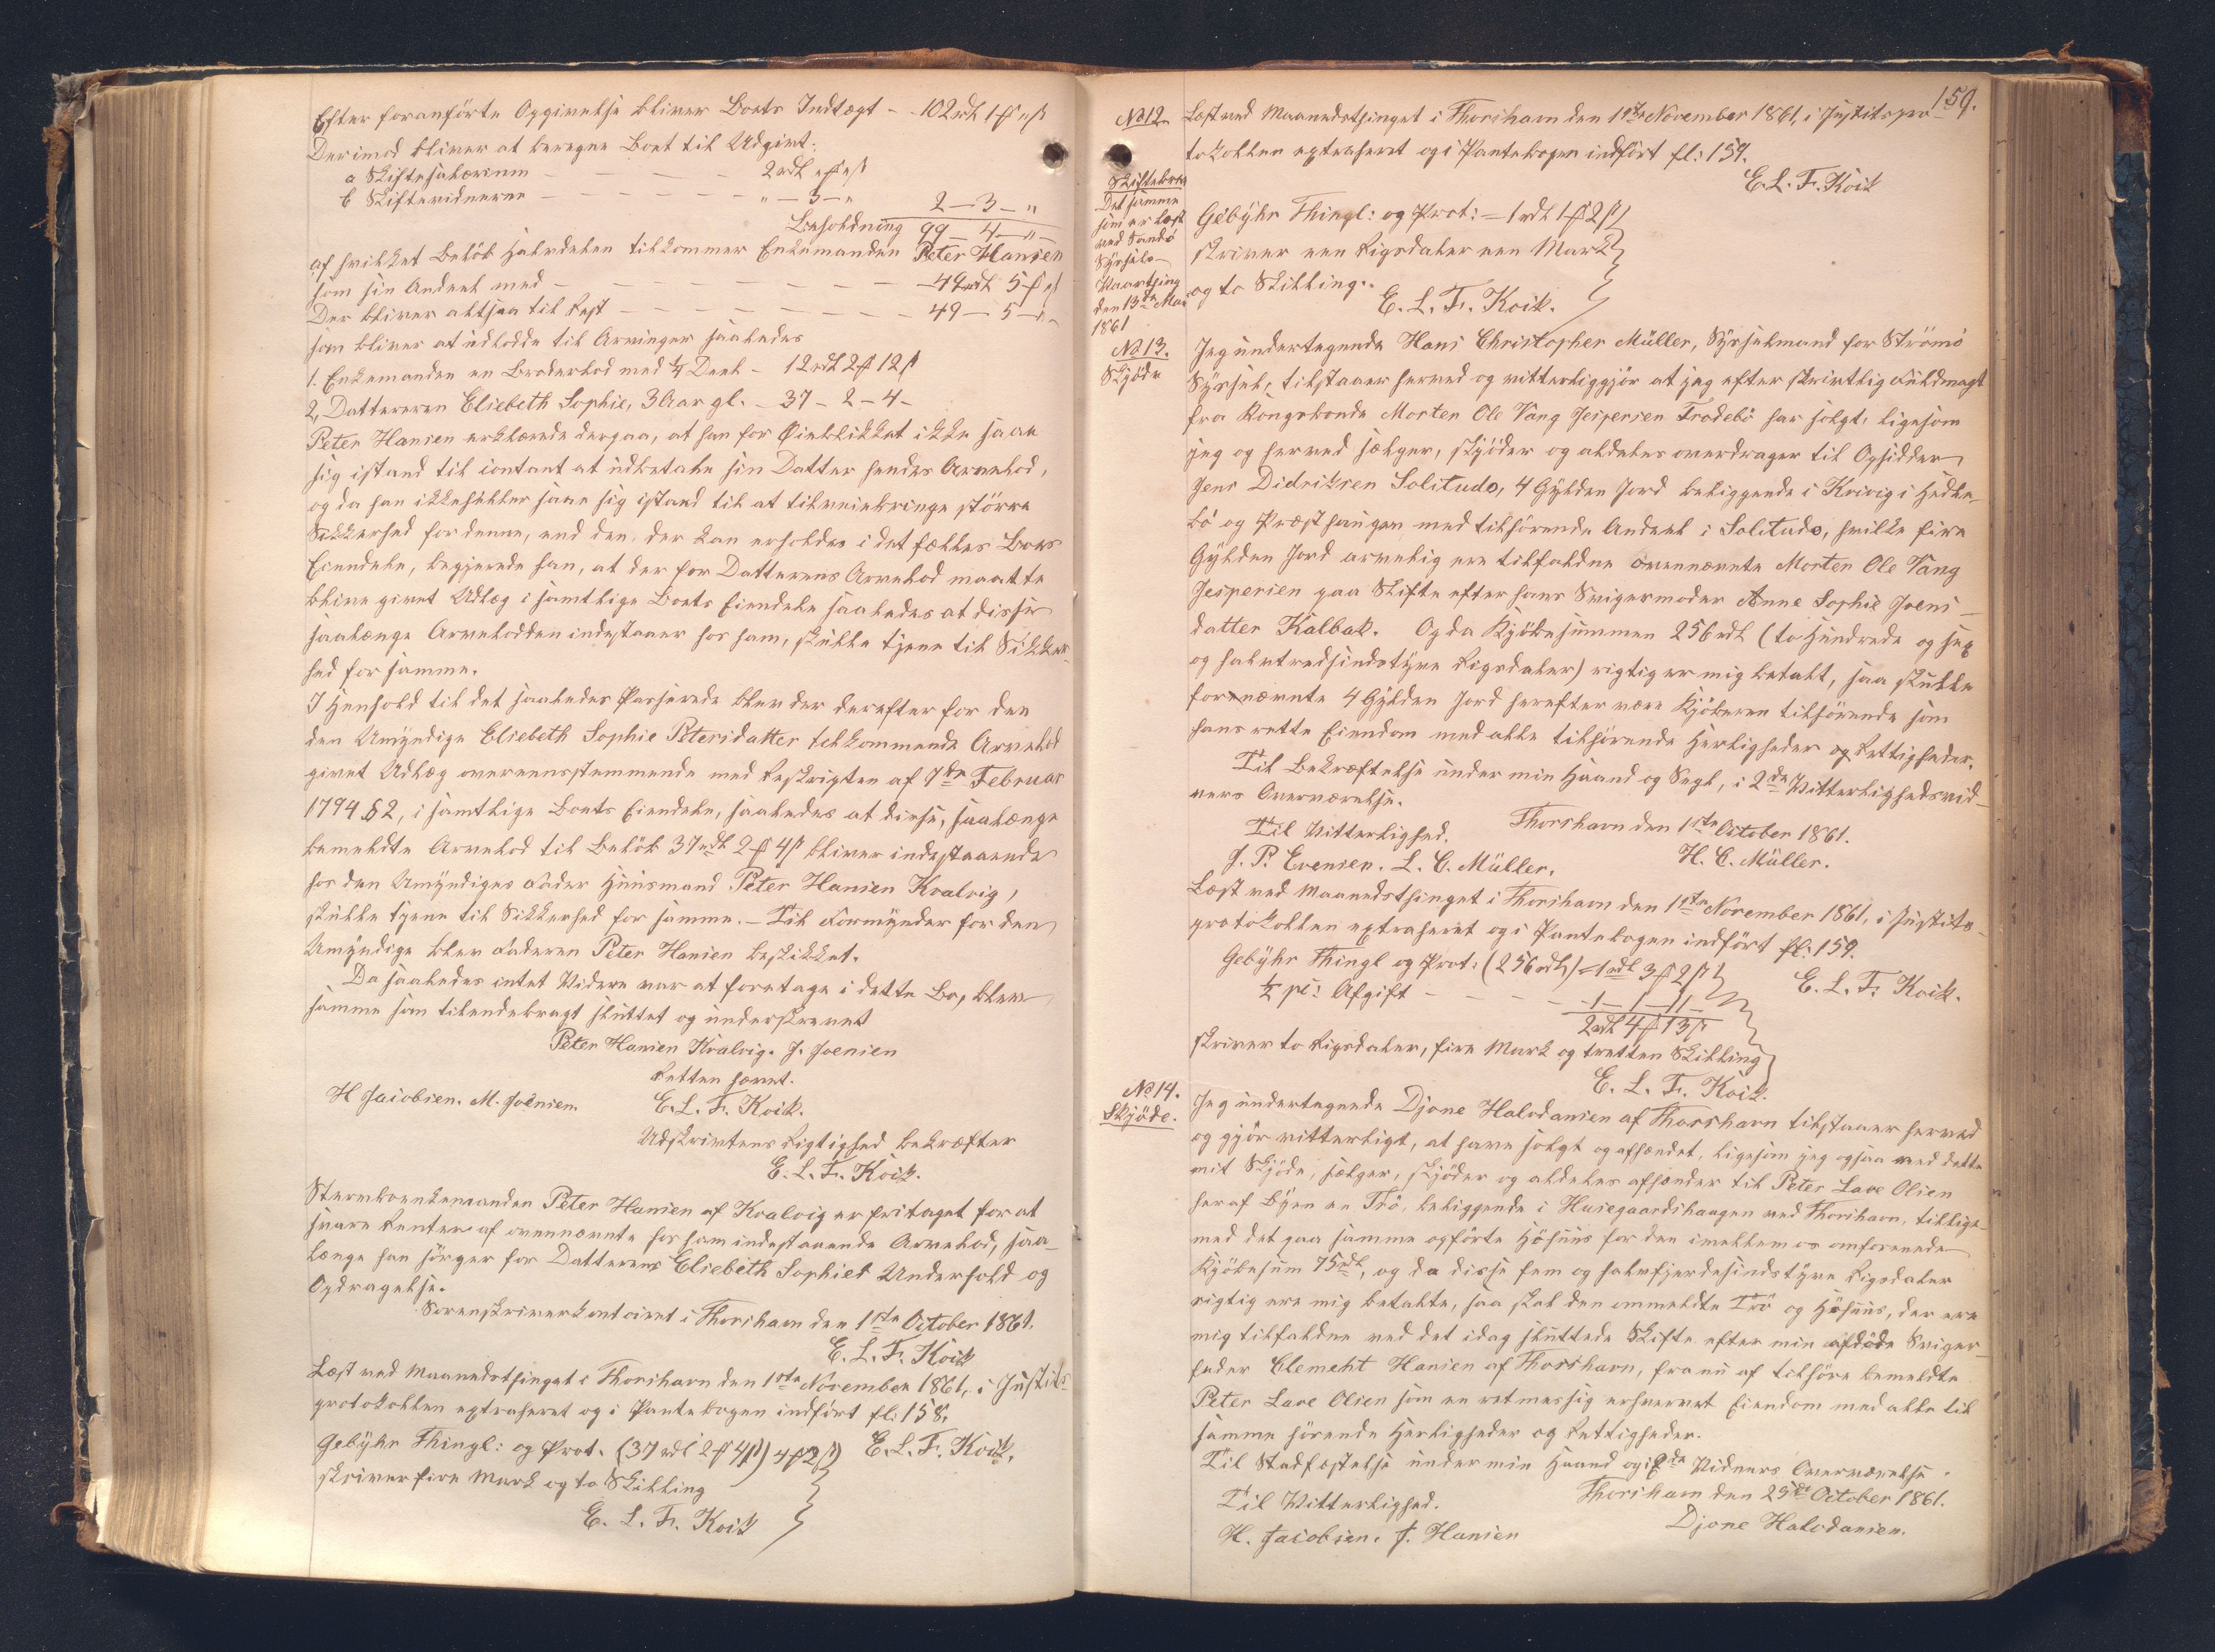 Efter foranförte Opgivelse bliver Boets Indtægt - 102 rdl 1 ß " ß
Derimod bliver at beregne Boet til Udgivt:
a Skiftesalærium — — — 2 rdl " ß " ß
b Skiftevidnerne — — — — " — 3 — " 2 — 3 — "
Beholdning 99 — 4 — "
af hvilket Belöb Halvdelen tilkommer Enkemanden Peter Hansen
som sin Andeel med — — — — — 49 rdl 5 ß " ß
Der bliver altsaa til Rest — — — — — 49 — 5 — "
som bliver at udlodde til Arvinger saaledes
1. Enkemanden en Broderlod med 1/4 Deel - 12 rdl 2 ß 12 ß
2, Datteren Eliebeth Sophie, 3 Aar gl. - 37 - 2 - 4 -
Peter Hansen erklærede derpaa, at han for Öieblikket ikke saae
sig istand til contant at udbetale sin Datter hendes Arvelod,
og da han ikkeheller saae sig istand til at tilveiebringe större
Sikkerhed for denne, end den, der kan erholdes i det fælles Boes
Eiendele, begjerede han, at der for Datterens Arvelod maatte
blive givet Udlæg i samtlige Boets Eiendele saaledes at disse
saalænge Arvelodden indestaaer hos ham, skulle tjene til Sikker-
hed for samme.
I Henhold til det saaledes Passerede blev der derefter for den
den Umyndige Eliebeth Sophie Petersdatter tilkommende Arvelod
givet Udlæg overeensstemmende med Reskripten af 7de Februar
1794 § 2, i samtlige Boets Eiendele, saaledes at disse, saalænge
bemeldte Arvelod til Belöb 37 rdl 2 ß 4 ß bliver indestaaende
hos den Umyndiges Fader Huusmand Peter Hansen Kvalvig,
skulle tjene til Sikkerhed for samme. - Til Formynder for den
Umyndige blev Faderen Peter Hansen beskikket.
Da saaledes intet Videre var at foretage i dette Bo, blev
samme som tilendebragt sluttet og underskrevet
Peter Hansen Kvalvig. J. Joensen
Retten hævet.
H Jacobsen. M. Joensen. E. L. F. Koik.
Udskriftens Rigtighed bekræfter
E. L. F. Koik.
Stervboenkemanden Peter Hansen af Kvalvig er fritaget for at
svare Renter af ovennævnte hos ham indestaaende Arvelod, saa-
længe han sörger for Datterens Eliebeth Sophies Underhold og
Opdragelse.
Sorenskriverkontoiret i Thorshavn den 1ste October 1861.
E. L. F. Koik
Læst ved Maanedsthinget i Thorshavn den 1ste November 1861, i Justits-
protokollen extraheret og i Pantebogen indfört fl: 158.
Gebyhr Thingl: og Prot. (37 rdl 2 ß 4 ß) 4 ß 2 ß E. L. F. Koik.
skriver fire Mark og to Skilling
E. L. F. Koik
159.
No 12. Læst ved Maanedsthinget i Thorshavn den 1ste November 1861, i Justitspro-
tokollen extraheret og i Pantebogen indfört fl: 159.
E. L. F. Koik
Skiftebrev
Det samme
som er læst
ved Sandö
Syssels
Vaarthing
den 13de Mai
1861
Gebyhr Thingl: og Prot: = 1 rdl 1 ß 2 ß
skriver een Rigsdaler een Mark
og to Skilling.
E. L. F. Koik.
No 13.
Skjöde
Jeg undertegnede Hans Christopher Müller, Sysselmand for Strömö
Syssel, tilstaaer herved og vitterliggjör at jeg efter skriftlig Fuldmagt
fra Kongsbonde Morten Ole Vang Jespersen Frodebö har solgt, ligesom
jeg og herved sælger, skjöder og aldeles overdrager til Opsidder
Jens Didriksen Solitude, 4 Gylden Jord beliggende i Kvivig i Hedle-
bö og Præsthaugen med tilhörende Andeel i Solitude, hvilke fire
Gylden Jord arvelig ere tilfaldne ovennævnte Morten Ole Vang
Jespersen paa Skifte efter hans Svigermoder Anne Sophie Joens-
datter Kalbak. Og da Kjöbesummen 256 rdl (to Hundrede og sex
og halvtredsindstyve Rigsdaler) rigtig er mig betalt, saa skulle
fornævnte 4 Gylden Jord herefter være Kjöberen tilhörende som
hans rette Eiendom med alle tilhörende Herligheder og Rettigheder.
Til Bekræftelse under min Haand og Segl, i 2de Vitterlighedsvid-
ners Overværelse.
Thorshavn den 1ste October 1861.
Til Vitterlighed. H. C. Müller.
J. P. Evensen. L. C. Müller.
Læst ved Maanedsthinget i Thorshavn den 1ste November 1861, i Justits-
protokollen extraheret og i Pantebogen indfört fl: 159.
Gebyhr Thingl og Prot: (256 rdl) = 1 rdl 3 ß 2 ß E. L. F. Koik.
½ pC: Afgift — — — 1 — 1 — 11 —
2 rdl 4 ß 13 ß
skriver to Rigsdaler, fire Mark og tretten Skilling
E. L. F. Koik.
No 14.
Skjöde.
Jeg undertegnede Djone Halvdansen af Thorshavn tilstaaer herved
og gjör vitterligt, at have solgt og afhændet, ligesom jeg ogsaa ved dette
mit Skjöde, sælger, skjöder og aldeles afhænder til Peter Lave Olsen
her af Byen en Trö, beliggende i Husegaardshaugen ved Thorshavn, tillige
med det paa samme opförte Höhuus for den imellem os omforenede
Kjöbesum 75 rdl, og da disse fem og halvfjerdesindstyve Rigsdaler
rigtig ere mig betalte, saa skal den ommeldte Trö og Höhuus, der ere
mig tilfaldne ved det idag sluttede Skifte efter min afdöde Sviger-
fader Clement Hansen af Thorshavn, fra nu af tilhöre bemeldte
Peter Lave Olsen som en retmessig erhvervet Eiendom med alle til
samme hörende Herligheder og Rettigheder.
Til Stadfæstelse under min Haand og i 2de Vidners Overværelse.
Thorshavn den 25de October 1861.
Til Vitterlighed. Djone Halvdansen.
H. Jacobsen. J. Hansen